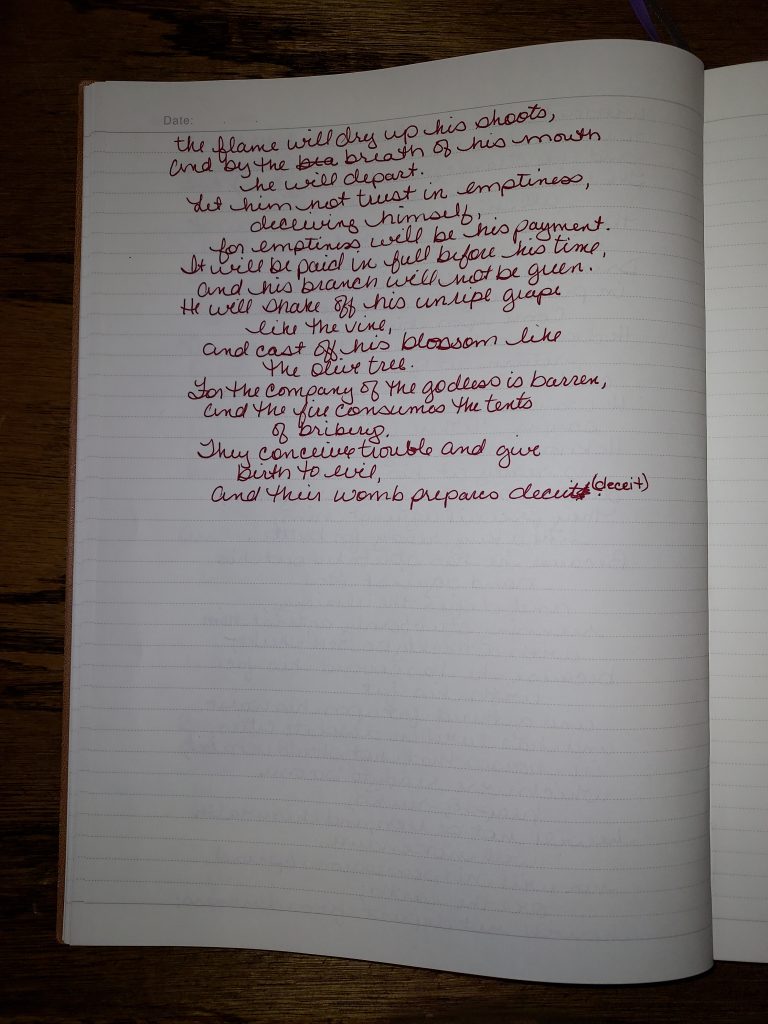 Date:
the flame will dry up his shoots,
and by the bra breath of his mouth
he will depart.
Let him not trust in emptiness,
deceiving himself,
for emptiness will be his payment.
It will be paid in full before his time,
and his branch will not be green.
He will shake off his unripe grape
like the vine,
and cast off his blossom like
the olive tree.
For the company of the godless is barren,
and the fire consumes the tents
of bribery.
They conceive trouble and give
birth to evil,
and their womb prepares deceit. (deceit)